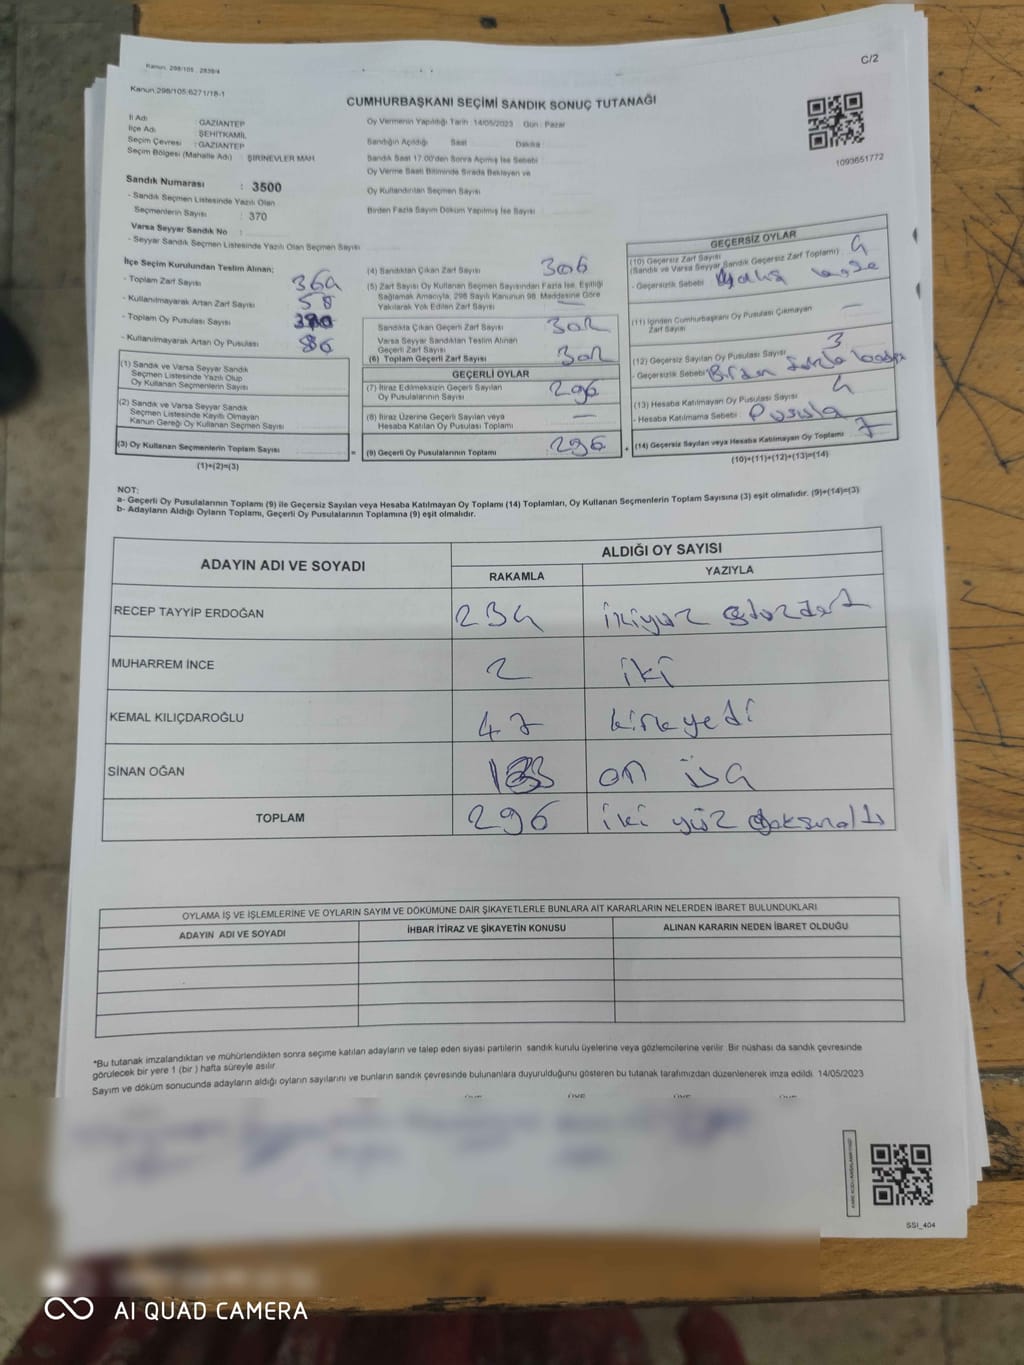 Kanun, 298/105 . 2839/4
C/2
Kanun,298/105:6271/18-1
CUMHURBAŞKANI SEÇİMİ SANDIK SONUÇ TUTANAĞI
İl Adı : GAZİANTEP
İlçe Adı : ŞEHİTKAMİL
Seçim Çevresi : GAZİANTEP
Seçim Bölgesi (Mahalle Adı) : ŞİRİNEVLER MAH.
Oy Vermenin Yapıldığı Tarih : 14/05/2023 Gün : Pazar
Sandığın Açıldığı Saat Dakika
Sandık Saat 17.00'den Sonra Açılmış İse Sebebi
Oy Verme Saati Bitiminde Sırada Bekleyen ve
Oy Kullandırılan Seçmen Sayısı
Birden Fazla Sayım Döküm Yapılmış İse Sayısı
1093651772
Sandık Numarası : 3500
- Sandık Seçmen Listesinde Yazılı Olan
Seçmenlerin Sayısı : 370
Varsa Seyyar Sandık No :
- Seyyar Sandık Seçmen Listesinde Yazılı Olan Seçmen Sayısı
İlçe Seçim Kurulundan Teslim Alınan;
- Toplam Zarf Sayısı 364
- Kullanılmayarak Artan Zarf Sayısı 58
- Toplam Oy Pusulası Sayısı
- Kullanılmayarak Artan Oy Pusulası 86
(1) Sandık ve Varsa Seyyar Sandık
Seçmen Listesinde Yazılı Olup
Oy Kullanan Seçmenlerin Sayısı
(2) Sandık ve Varsa Seyyar Sandık
Seçmen Listesinde Kayıtlı Olmayan
Kanun Gereği Oy Kullanan Seçmen Sayısı
(3) Oy Kullanan Seçmenlerin Toplam Sayısı
(1)+(2)=(3)
(4) Sandıktan Çıkan Zarf Sayısı 306
(5) Zarf Sayısı Oy Kullanan Seçmen Sayısından Fazla İse, Eşitliği
Sağlamak Amacıyla, 298 Sayılı Kanunun 98. Maddesine Göre
Yakılarak Yok Edilen Zarf Sayısı —
Sandıkta Çıkan Geçerli Zarf Sayısı 302
Varsa Seyyar Sandıktan Teslim Alınan
Geçerli Zarf Sayısı
(6) Toplam Geçerli Zarf Sayısı 302
GEÇERLİ OYLAR
(7) İtiraz Edilmeksizin Geçerli Sayılan
Oy Pusulalarının Sayısı 296
(8) İtiraz Üzerine Geçerli Sayılan veya
Hesaba Katılan Oy Pusulası Toplamı —
= (9) Geçerli Oy Pusulalarının Toplamı 296
GEÇERSİZ OYLAR
(10) Geçersiz Zarf Sayısı 4
(Sandık ve Varsa Seyyar Sandık Geçersiz Zarf Toplamı)
- Geçersizlik Sebebi
(11) İçinden Cumhurbaşkanı Oy Pusulası Çıkmayan
Zarf Sayısı
(12) Geçersiz Sayılan Oy Pusulası Sayısı 3
- Geçersizlik Sebebi Birden
(13) Hesaba Katılmayan Oy Pusulası Sayısı 4
- Hesaba Katılmama Sebebi : Pusula
+ (14) Geçersiz Sayılan veya Hesaba Katılmayan Oy Toplamı 7
(10)+(11)+(12)+(13)=(14)
NOT:
a- Geçerli Oy Pusulalarının Toplamı (9) ile Geçersiz Sayılan veya Hesaba Katılmayan Oy Toplamı (14) Toplamları, Oy Kullanan Seçmenlerin Toplam Sayısına (3) eşit olmalıdır. (9)+(14)=(3)
b- Adayların Aldığı Oyların Toplamı, Geçerli Oy Pusulalarının Toplamına (9) eşit olmalıdır.
ADAYIN ADI VE SOYADI ALDIĞI OY SAYISI
RAKAMLA YAZIYLA
RECEP TAYYİP ERDOĞAN 234 ikiyüz otuzdört
MUHARREM İNCE 2 iki
KEMAL KILIÇDAROĞLU 47 kırkyedi
SİNAN OĞAN 13 on üç
TOPLAM 296 iki yüz doksanaltı
OYLAMA İŞ VE İŞLEMLERİNE VE OYLARIN SAYIM VE DÖKÜMÜNE DAİR ŞİKAYETLERLE BUNLARA AİT KARARLARIN NELERDEN İBARET BULUNDUKLARI
ADAYIN ADI VE SOYADI İHBAR İTİRAZ VE ŞİKAYETİN KONUSU ALINAN KARARIN NEDEN İBARET OLDUĞU
*Bu tutanak imzalandıktan ve mühürlendikten sonra seçime katılan adayların ve talep eden siyasi partilerin sandık kurulu üyelerine veya gözlemcilerine verilir. Bir nüshası da sandık çevresinde
görülecek bir yere 1 (bir ) hafta süreyle asılır.
Sayım ve döküm sonucunda adayların aldığı oyların sayılarını ve bunların sandık çevresinde bulunanlara duyurulduğunu gösteren bu tutanak tarafımızdan düzenlenerek imza edildi. 14/05/2023
SSI_404
AI QUAD CAMERA